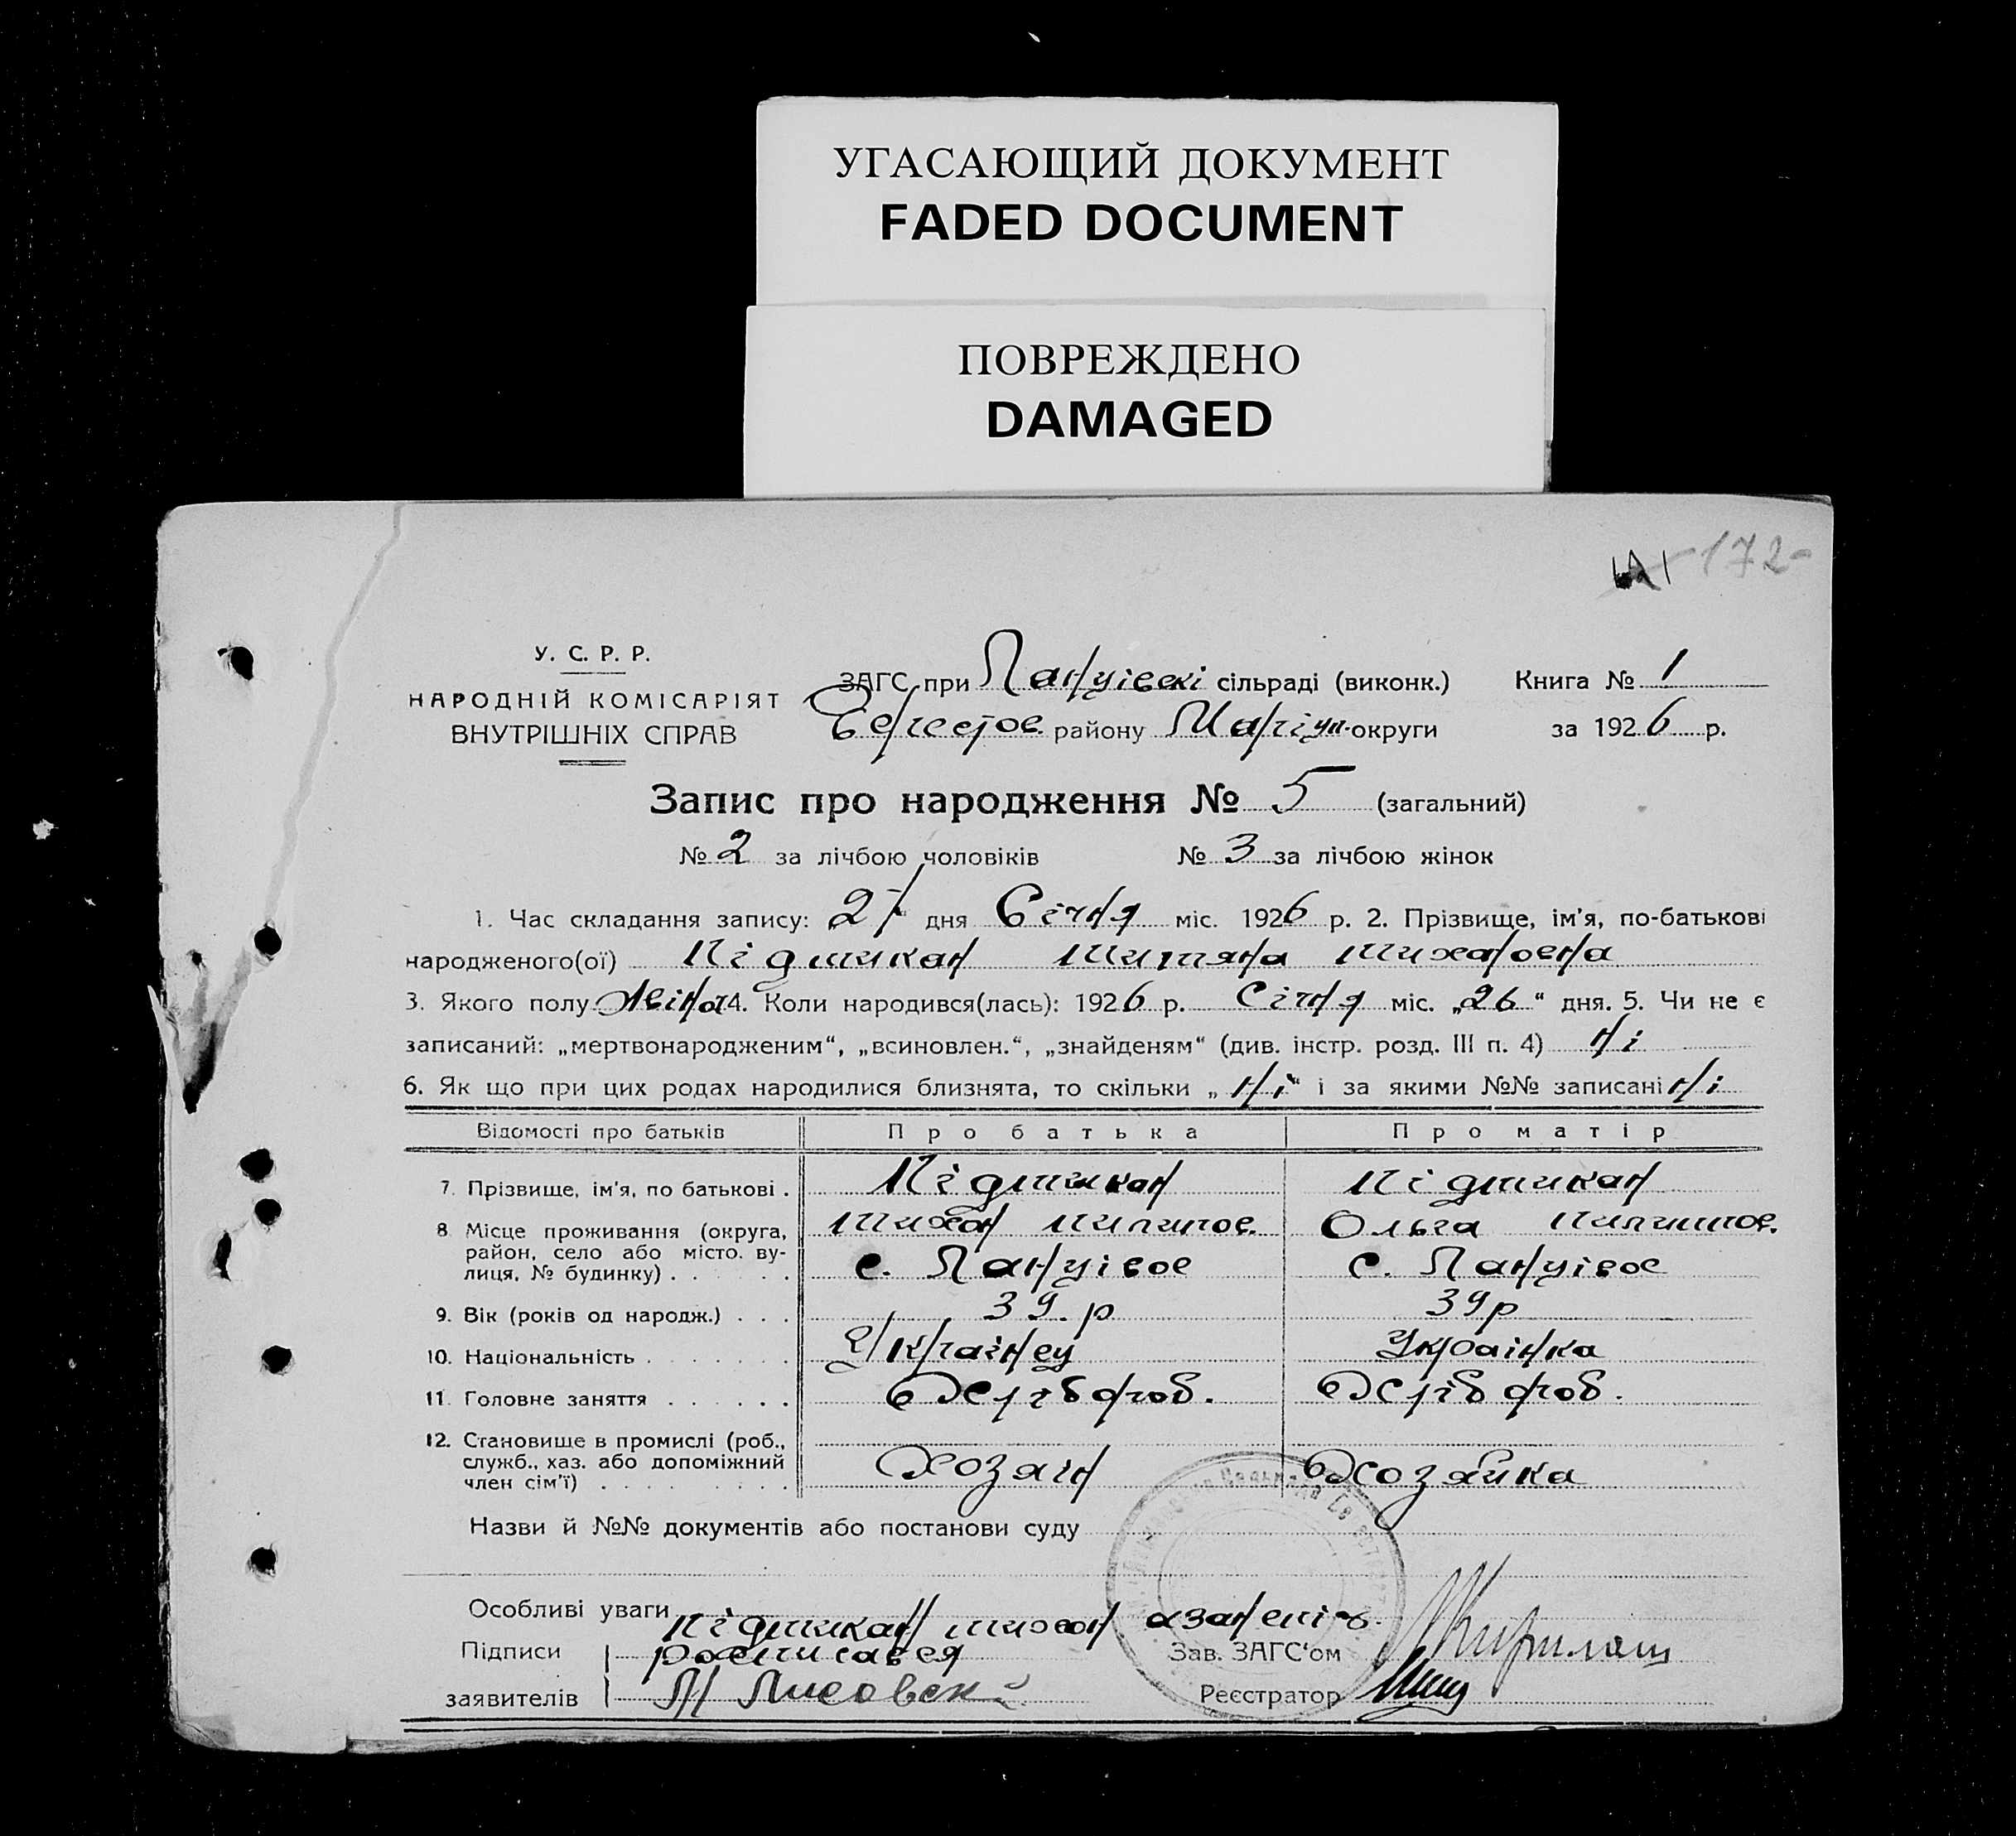 УГАСАЮЩИЙ ДОКУМЕНТ
FADED DOCUMENT
ПОВРЕЖДЕНО
DAMAGED
172
У. С. Р. Р.
НАРОДНІЙ КОМІСАРІЯТ
ВНУТРІШНІХ СПРАВ
ЗАГС при сільраді (виконк.) Книга № 1
району Маріуп. округи за 1926 р.
Запис про народження № 5 (загальний)
№ 2 за лічбою чоловіків № 3 за лічбою жінок
1. Час складання запису: „27“ дня Січня міс. 1926 р. 2. Прізвище, ім'я, по-батькові
народженого(ої)
3. Якого полу Жіноч 4. Коли народився(лась): 1926 р. Січня міс. „26“ дня. 5. Чи не є
записаний: „мертвонародженим“, „всиновлен.“, „знайденям“ (див. інстр. розд. III п. 4) Ні
6. Як що при цих родах народилися близнята, то скільки „Ні“ і за якими №№ записані Ні
Відомості про батьків Про батька Про матір
7. Прізвище, ім'я, по батькові .
Ольга
8. Місце проживання (округа,
район, село або місто, ву-
лиця, № будинку) . . . . с. с.
9. Вік (років од народж.) . . . 39 р 39 р
10. Національність . . . . . . . Українец Українка
11. Головне заняття . . . . . . Хлібороб. Хлібороб.
12. Становище в промислі (роб.,
служб., хаз. або допоміжний
член сім'ї) . . . . . . . Хозяін Хозяйка
Назви й №№ документів або постанови суду
Особливі уваги
Підписи росписався Зав. ЗАГС'ом
заявителів Лисовский Реєстратор